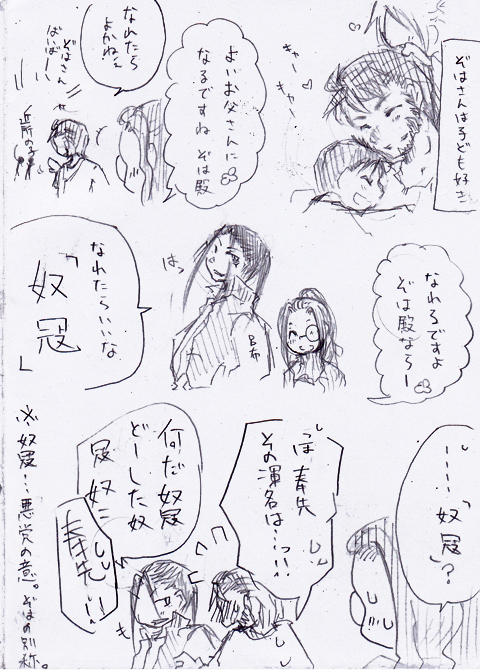 ぞはさんは子ども好き
キャー
キャー
よいお父さんに
なるですね ぞは殿
なれたら
よかねぇ
ぞはさん
ばいばーい
近所の子
なれるですよ
ぞは殿ならー
はっ
B布
なれたらいいな
「奴冠」
……「奴冠」?
つほ 奉先
その渾名は…っ!!
何だ奴冠
どーした奴
冠 奴ニ
奉先!!
※奴冠…悪党の意。ぞはの別称。